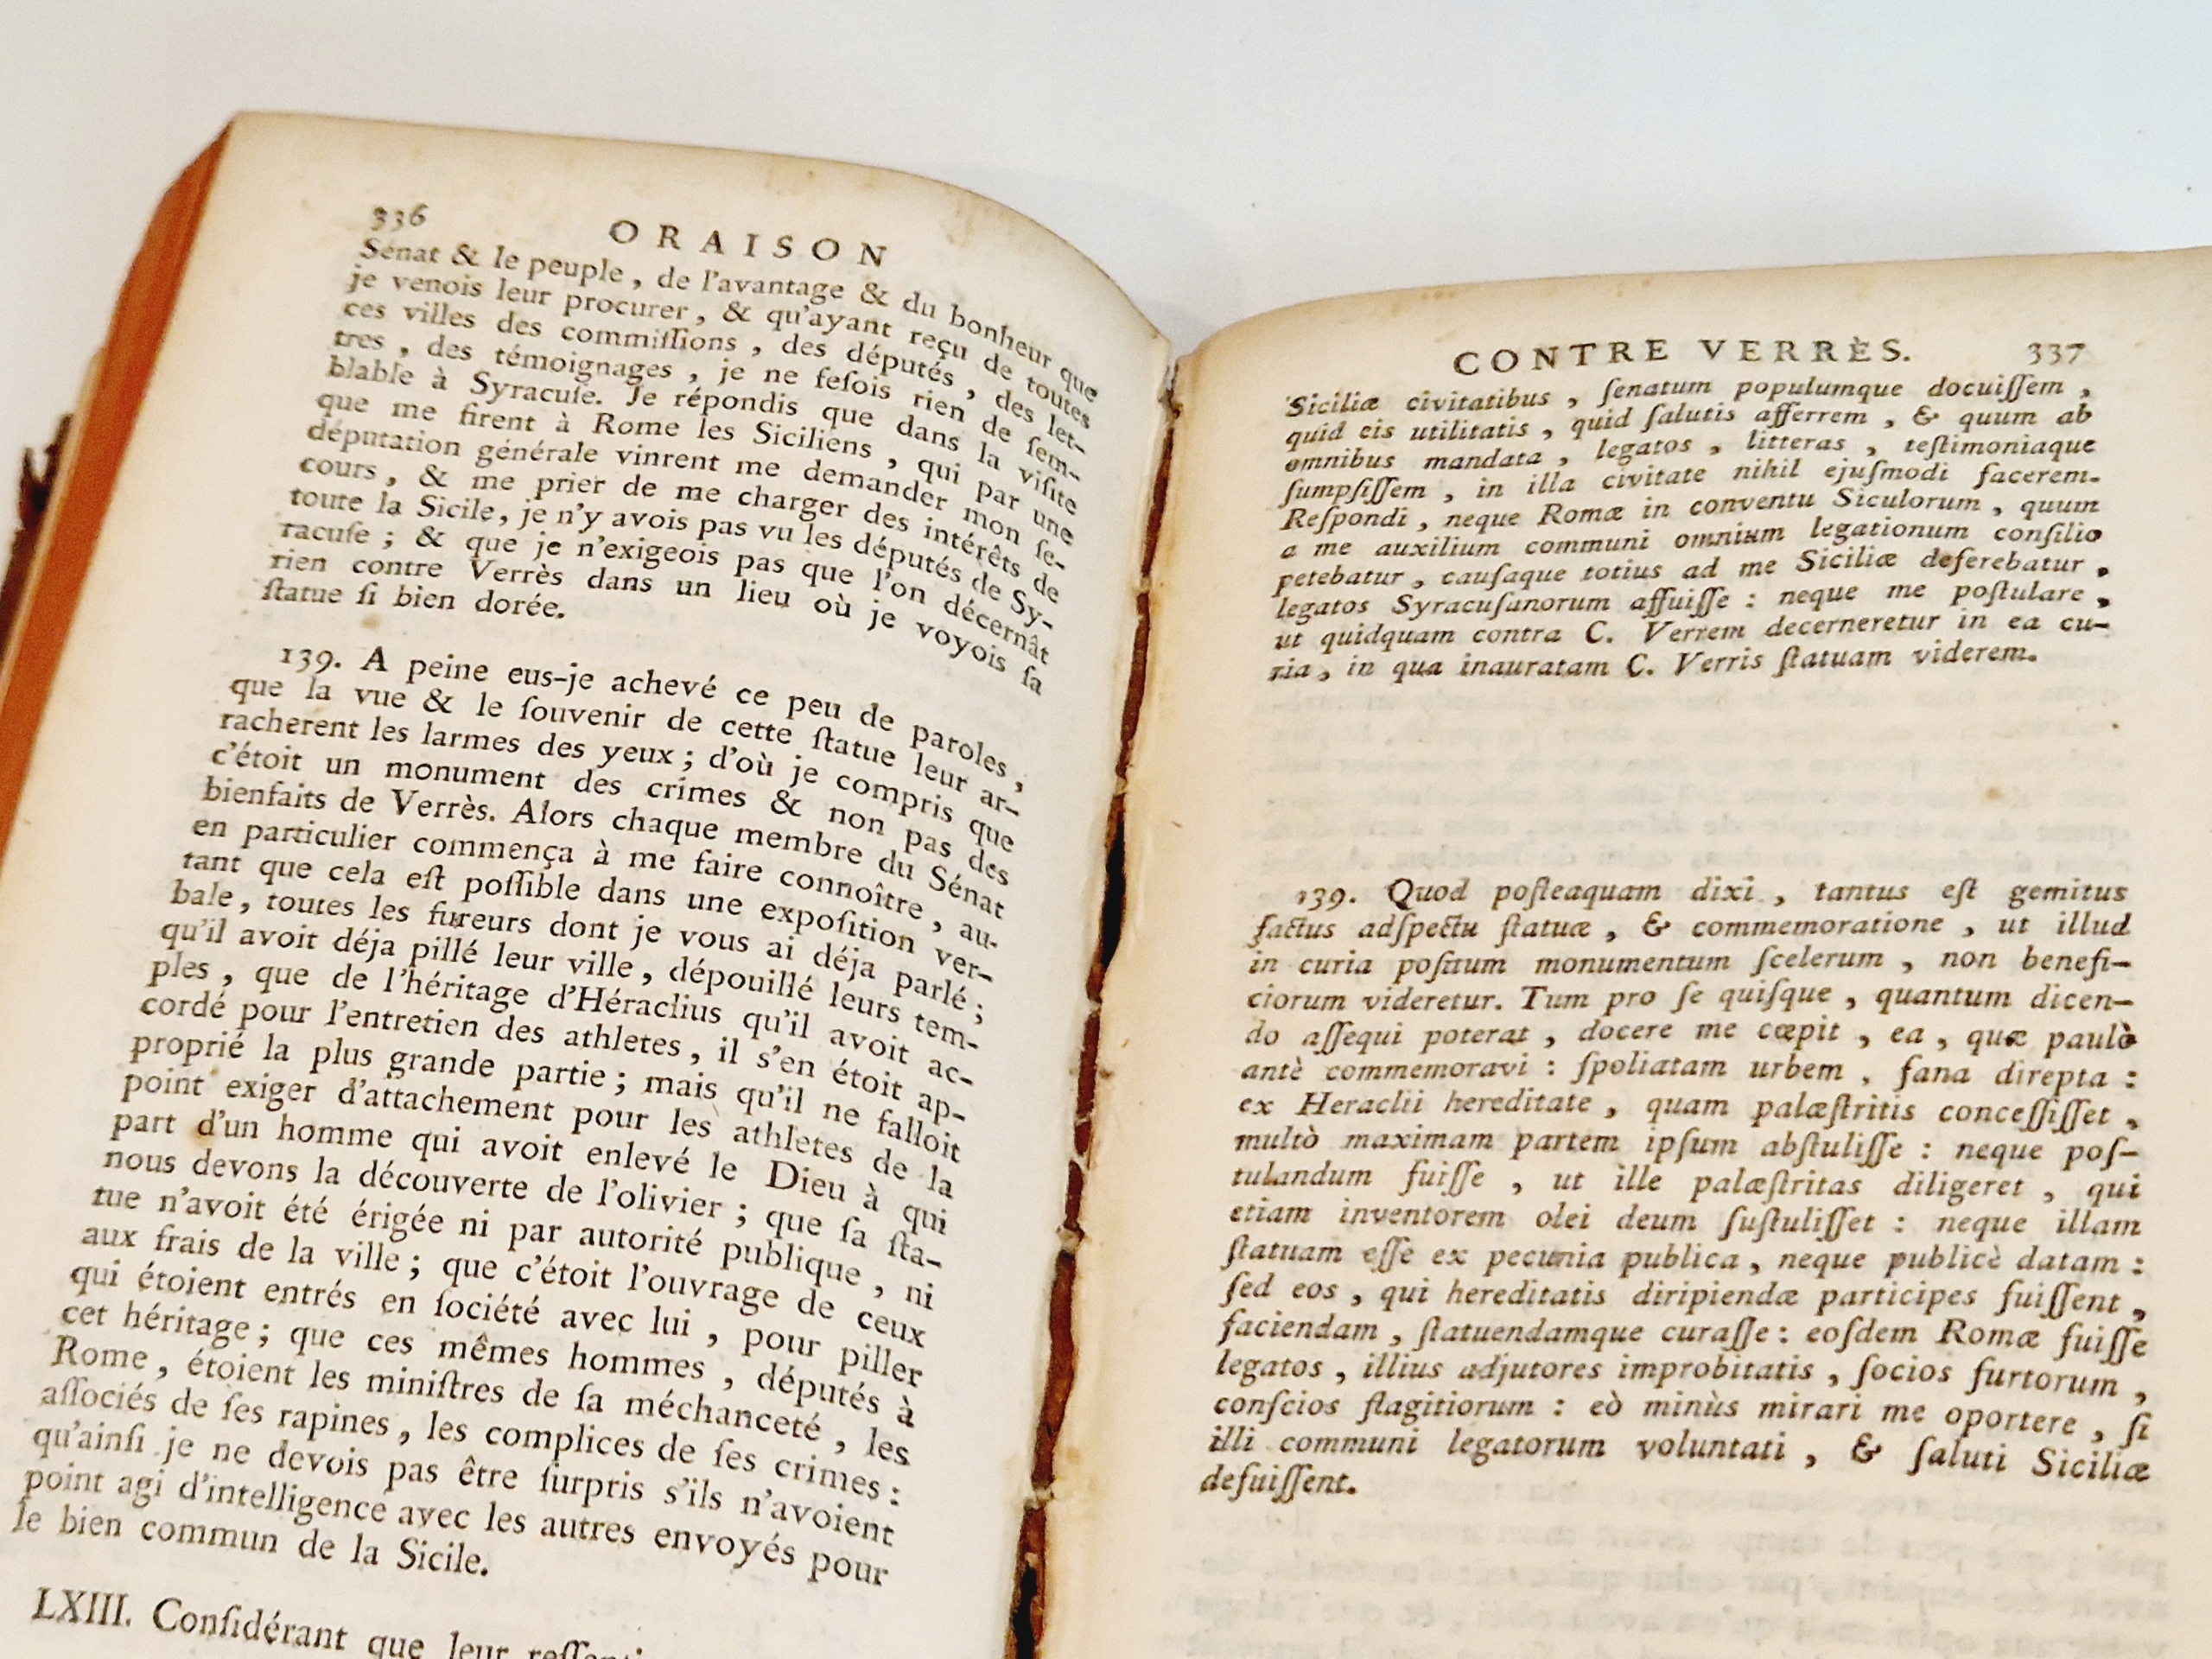 336
ORAISON
Sénat & le peuple, de l'avantage & du bonheur que
je venois leur procurer, & qu'ayant reçu de toutes
ces villes des commiſſions, des députés, des let-
tres, des témoignages, je ne feſois rien de ſem-
blable à Syracuſe. Je répondis que dans la viſite
que me firent à Rome les Siciliens, qui par une
députation générale vinrent me demander mon ſe-
cours, & me prier de me charger des intérêts de
toute la Sicile, je n'y avois pas vu les députés de Sy-
racuſe; & que je n'exigeois pas que l'on décernât
rien contre Verrès dans un lieu où je voyois ſa
ſtatue ſi bien dorée.
139. A peine eus-je achevé ce peu de paroles,
que la vue & le ſouvenir de cette ſtatue leur ar-
racherent les larmes des yeux; d'où je compris que
c'étoit un monument des crimes & non pas des
bienfaits de Verrès. Alors chaque membre du Sénat
en particulier commença à me faire connoître, au-
tant que cela eſt poſſible dans une expoſition ver-
bale, toutes les fureurs dont je vous ai déja parlé;
qu'il avoit déja pillé leur ville, dépouillé leurs tem-
ples, que de l'héritage d'Héraclius qu'il avoit ac-
cordé pour l'entretien des athletes, il s'en étoit ap-
proprié la plus grande partie; mais qu'il ne falloit
point exiger d'attachement pour les athletes de la
part d'un homme qui avoit enlevé le Dieu à qui
nous devons la découverte de l'olivier; que ſa ſta-
tue n'avoit été érigée ni par autorité publique, ni
aux frais de la ville; que c'étoit l'ouvrage de ceux
qui étoient entrés en ſociété avec lui, pour piller
cet héritage; que ces mêmes hommes, députés à
Rome, étoient les miniſtres de ſa méchanceté, les
aſſociés de ſes rapines, les complices de ſes crimes:
qu'ainſi je ne devois pas être ſurpris s'ils n'avoient
point agi d'intelligence avec les autres envoyés pour
le bien commun de la Sicile.
LXIII. Conſidérant que leur
CONTRE VERRÈS. 337
Siciliæ civitatibus, ſenatum populumque docuiſſem,
quid eis utilitatis, quid ſalutis afferrem, & quum ab
omnibus mandata, legatos, litteras, teſtimoniaque
ſumpſiſſem, in illa civitate nihil ejuſmodi facerem.
Reſpondi, neque Romæ in conventu Siculorum, quum
a me auxilium communi omnium legationum conſilio
petebatur, cauſaque totius ad me Siciliæ deferebatur,
legatos Syracuſanorum affuiſſe: neque me poſtulare,
ut quidquam contra C. Verrem decerneretur in ea cu-
ria, in qua inauratam C. Verris ſtatuam viderem.
139. Quod poſteaquam dixi, tantus eſt gemitus
factus adſpectu ſtatuæ, & commemoratione, ut illud
in curia poſitum monumentum ſcelerum, non benefi-
ciorum videretur. Tum pro ſe quiſque, quantum dicen-
do aſſequi poterat, docere me cœpit, ea, quæ paulò
antè commemoravi: ſpoliatam urbem, fana direpta:
ex Heraclii hereditate, quam palæſtritis conceſſiſſet,
multò maximam partem ipſum abſtuliſſe: neque poſ-
tulandum fuiſſe, ut ille palæſtritas diligeret, qui
etiam inventorem olei deum ſuſtuliſſet: neque illam
ſtatuam eſſe ex pecunia publica, neque publicè datam:
ſed eos, qui hereditatis diripiendæ participes fuiſſent,
faciendam, ſtatuendamque curaſſe: eoſdem Romæ fuiſſe
legatos, illius adjutores improbitatis, ſocios furtorum,
conſcios flagitiorum: eò minùs mirari me oportere, ſi
illi communi legatorum voluntati, & ſaluti Siciliæ
defuiſſent.